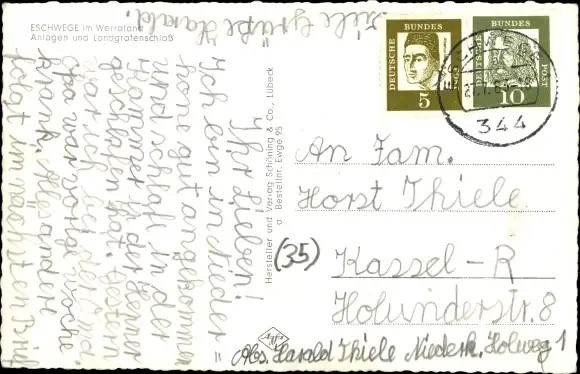 ESCHWEGE im Werraland
Anlagen und Landgrafenschloß
Ihr Lieben!
Ich bin in Nieder =
hone gut angekommen
und schlafe in der
Kammer in der Henner
geschlafen hat. Gestern
war ich bei der Oma.
Opa war vorige Woche
krank. Alles andere
folgt im nächsten Brief
Viele Grüße Harald.
Hersteller und Verlag Schöning & Co., Lübeck
Bestellnr. Ewge 95
DEUTSCHE
BUNDES
POST
5
DEUTSCHE
BUNDES
POST
10
344
An Fam.
Horst Thiele
(35)
Kassel-R
Holunderstr. 8
Abs. Harald Thiele Niederh. Holweg 1